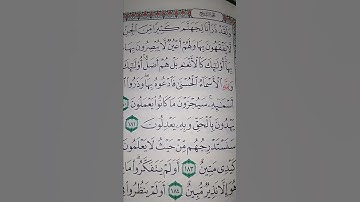 وَلَقَدْ ذَرَأْنَا لِجَهَنَّمَ كَثِيرًا مِّنَ ٱلْجِنِّ
لَّا يَفْقَهُونَ بِهَا وَلَهُمْ أَعْيُنٌ لَّا يُبْصِرُونَ
بِهَآ أُو۟لَٰٓئِكَ كَٱلْأَنْعَٰمِ بَلْ هُمْ أَضَلُّ أُو۟لَٰٓئِكَ
وَلِلَّهِ ٱلْأَسْمَآءُ ٱلْحُسْنَىٰ فَٱدْعُوهُ بِهَا وَذَرُوا۟
أَسْمَٰٓئِهِۦ سَيُجْزَوْنَ مَا كَانُوا۟ يَعْمَلُونَ
يَهْدُونَ بِٱلْحَقِّ وَبِهِۦ يَعْدِلُونَ ١٨١
سَنَسْتَدْرِجُهُم مِّنْ حَيْثُ لَا يَعْلَمُونَ
كَيْدِى مَتِينٌ ١٨٣ أَوَلَمْ يَتَفَكَّرُوا۟ مَا
هُوَ إِلَّا نَذِيرٌ مُّبِينٌ ١٨٤ أَوَلَمْ يَنظُرُوا۟